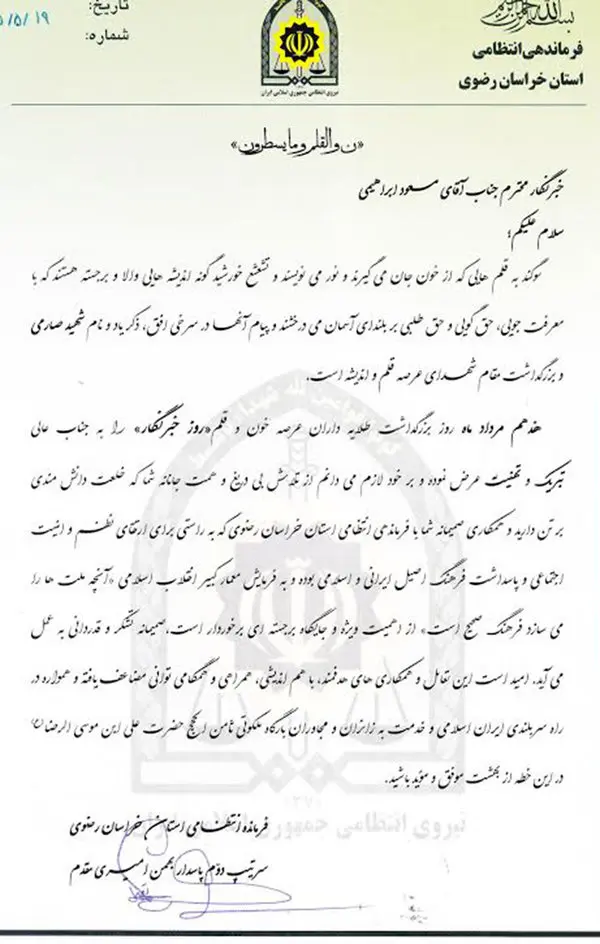 بسم الله الرحمن الرحیم
فرماندهی انتظامی
استان خراسان رضوی
نیروی انتظامی جمهوری اسلامی ایران
تاریخ:
۵/۵/۱۹
شماره:
«ن والقلم و ما یسطرون»
خبرنگار محترم جناب آقای مسعود ابراهیمی
سلام علیکم؛
سوگند به قلم هایی که از خون جان می گیرند و نور می نویسند و تشعشع خورشید گونه اندیشه هایی والا و برجسته هستند که با
معرفت جویی، حق گویی و حق طلبی بر بلندای آسمان می درخشند و پیام آنها در سرخی افق، ذکر یاد و نام شهید صارمی
و بزرگداشت مقام شهدای عرصه قلم و اندیشه است.
هفدهم مرداد ماه روز بزرگداشت طلایه داران عرصه خون و قلم «روز خبرنگار» را به جناب عالی
تبریک و تهنیت عرض نموده و بر خود لازم می دانم از تلاش بی دریغ و همت جانانه شما که خلعت دانش مندی
بر تن دارید و همکاری صمیمانه شما با فرماندهی انتظامی استان خراسان رضوی که به راستی برای ارتقای نظم و امنیت
اجتماعی و پاسداشت فرهنگ اصیل ایرانی و اسلامی بوده و به فرمایش معمار کبیر انقلاب اسلامی «آنچه ملت ها را
می سازد فرهنگ صحیح است» از اهمیت ویژه و جایگاه برجسته ای برخوردار است، صمیمانه تشکر و قدردانی به عمل
می آید. امید است این تعامل و همکاری های هدفمند، با هم اندیشی، همراهی و همگامی توانی مضاعف یافته و همواره در
راه سربلندی ایران اسلامی و خدمت به زائران و مجاوران بارگاه ملکوتی ثامن الحجج حضرت علی ابن موسی الرضا(ع)
در این خطه از بهشت موفق و مؤید باشید.
فرمانده انتظامی استان خراسان رضوی
سرتیپ دوم پاسدار بهمن امیری مقدم
۱۳۷۰
نیروی انتظامی جمهوری اسلامی ایران